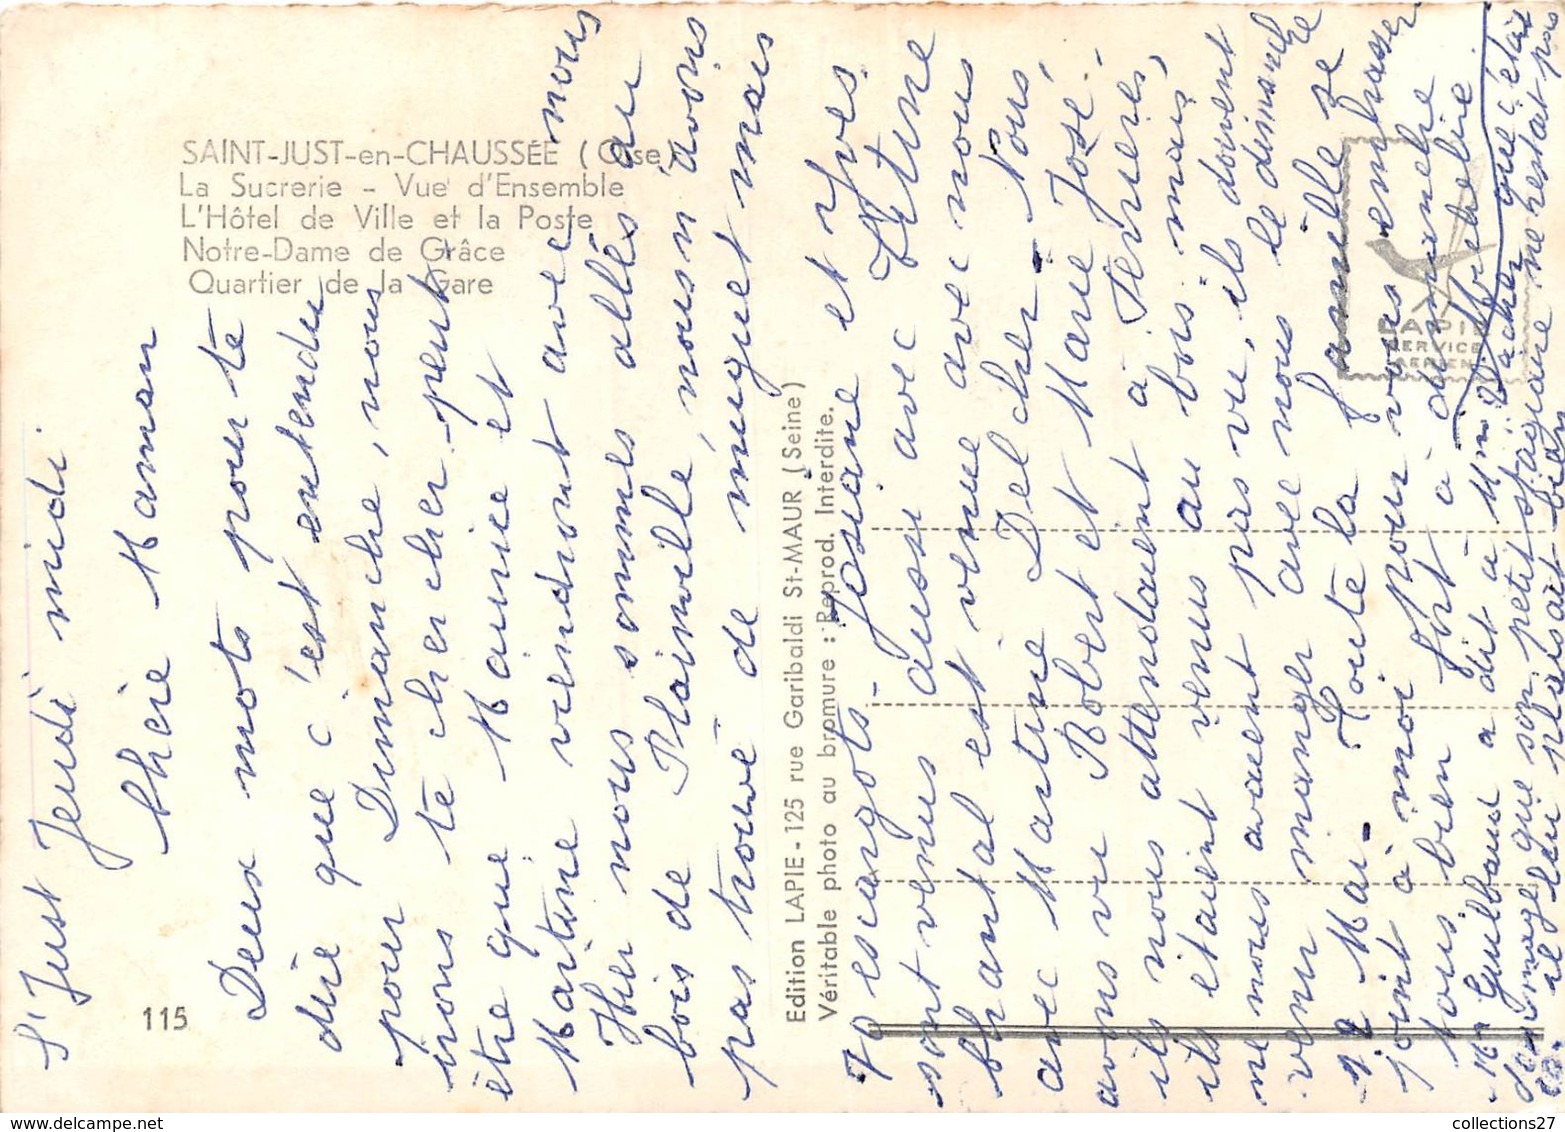 SAINT-JUST-en-CHAUSSÉE (Oise)
La Sucrerie - Vue d'Ensemble
L'Hôtel de Ville et la Poste
Notre-Dame de Grâce
Quartier de la Gare
115
St Just
Jeudi midi.
Chère Maman
Deux mots pour te
dire que c'est entendu
pour Dimanche, nous
irons te chercher peut
être que Maurice et
Martine viendront avec nous
Hier nous sommes allés au
bois de Plainville, nous n'avons
pas trouvé de muguet mais
Edition LAPIE - 125 rue Garibaldi St-MAUR (Seine)
Véritable photo au bromure : Reprod. Interdite.
70 escargots. Josiane et Yves
sont venus aussi avec
Chantal est venue avec nous
avec Martine Delcher - Nous
avons vu Robert et Marie José.
ils nous attendaient à
ils étaient venus au bois mais
ne nous avaient pas vu, ils doivent
venir manger avec nous le dimanche
22 Mai - Toute la famille se
joint à moi pour vous embrasser
tous bien fort à dimanche
Micheline
Mr Guilbaud a dit à Mme que c'était
dommage que son petit stagiaire ne restait pas
il lui plaisait bien
LAPIE
SERVICE
AERIEN
collections27